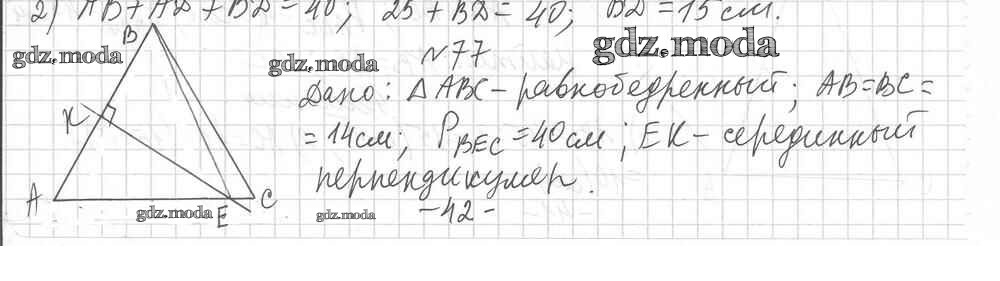 2) AB + AD + BD = 40; 25 + BD = 40; BD = 15 см.
B
gdz.moda
gdz.moda
№77
gdz.moda
Дано: △ABC – равнобедренный; AB = BC =
= 14 см; P_BEC = 40 см; EK – серединный
перпендикуляр.
K
A
C
gdz.moda
E
gdz.moda
– 42 –